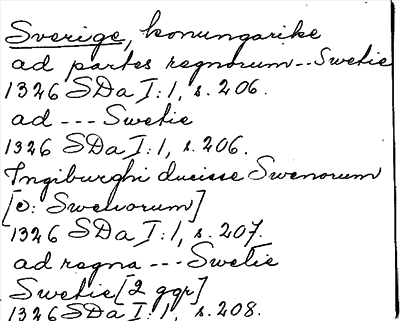 Sverige, konungarike
ad partes regnorum -- Swetie
1326 SDa I:1, s. 206.
ad --- Swetie
1326 SDa I:1, s. 206.
Ingiburghi ducisse Swenorum
[ɔ: Sweuorum]
1326 SDa I:1, s. 207.
ad regna --- Swetie
Swetie [2 ggr]
1326 SDa I:1, s. 208.